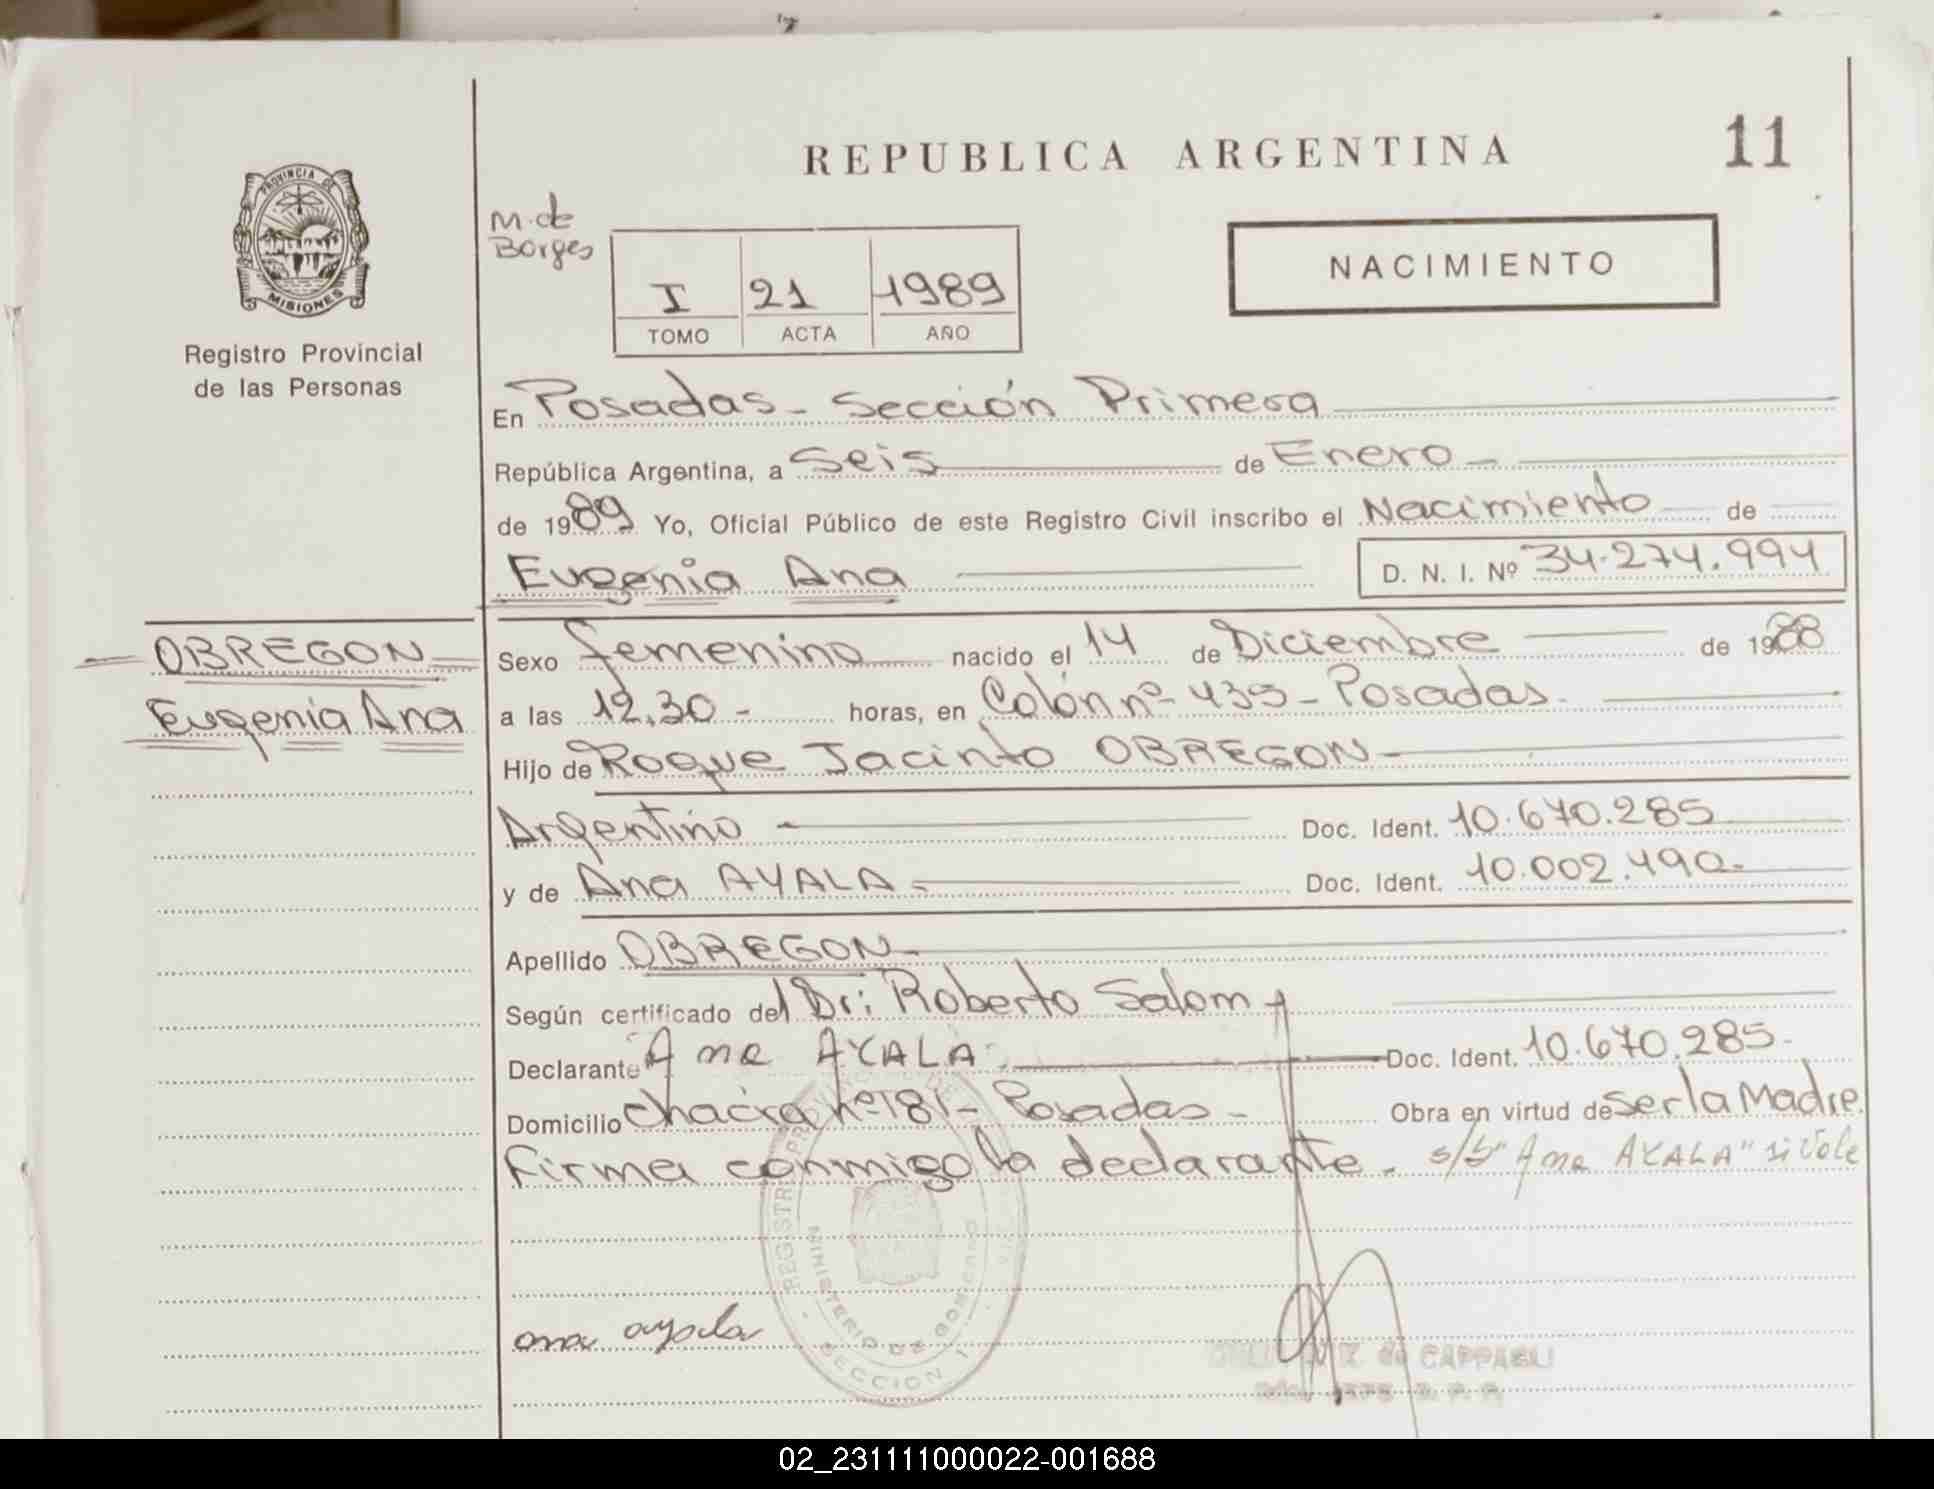 REPUBLICA ARGENTINA
11
PROVINCIA DE
MISIONES
Registro Provincial
de las Personas
M. de
Borges
I 21 1989
TOMO ACTA AÑO
NACIMIENTO
En Posadas - Sección Primera
República Argentina, a Seis de Enero -
de 1989 Yo, Oficial Público de este Registro Civil inscribo el Nacimiento de
Eugenia Ana D. N. I. Nº 34.274.994
OBREGON
Eugenia Ana
Sexo femenino nacido el 14 de Diciembre de 1988
a las 12,30 - horas, en Colón nº 435 - Posadas.
Hijo de Roque Jacinto OBREGON -
Argentino - Doc. Ident. 10.670.285
y de Ana AYALA - Doc. Ident. 10.002.490-
Apellido OBREGON
Según certificado del Dr: Roberto Salom
Declarante "Ana AYALA" Doc. Ident. 10.670.285-
Domicilio chacra nº 181 - Posadas - Obra en virtud de ser la Madre.
Firma conmigo la declarante. s/b "Ana AYALA" si Vale
ana ayala
MINISTERIO DE GOBIERNO
SECCION 1
de CAPPAGLI
02_231111000022-001688